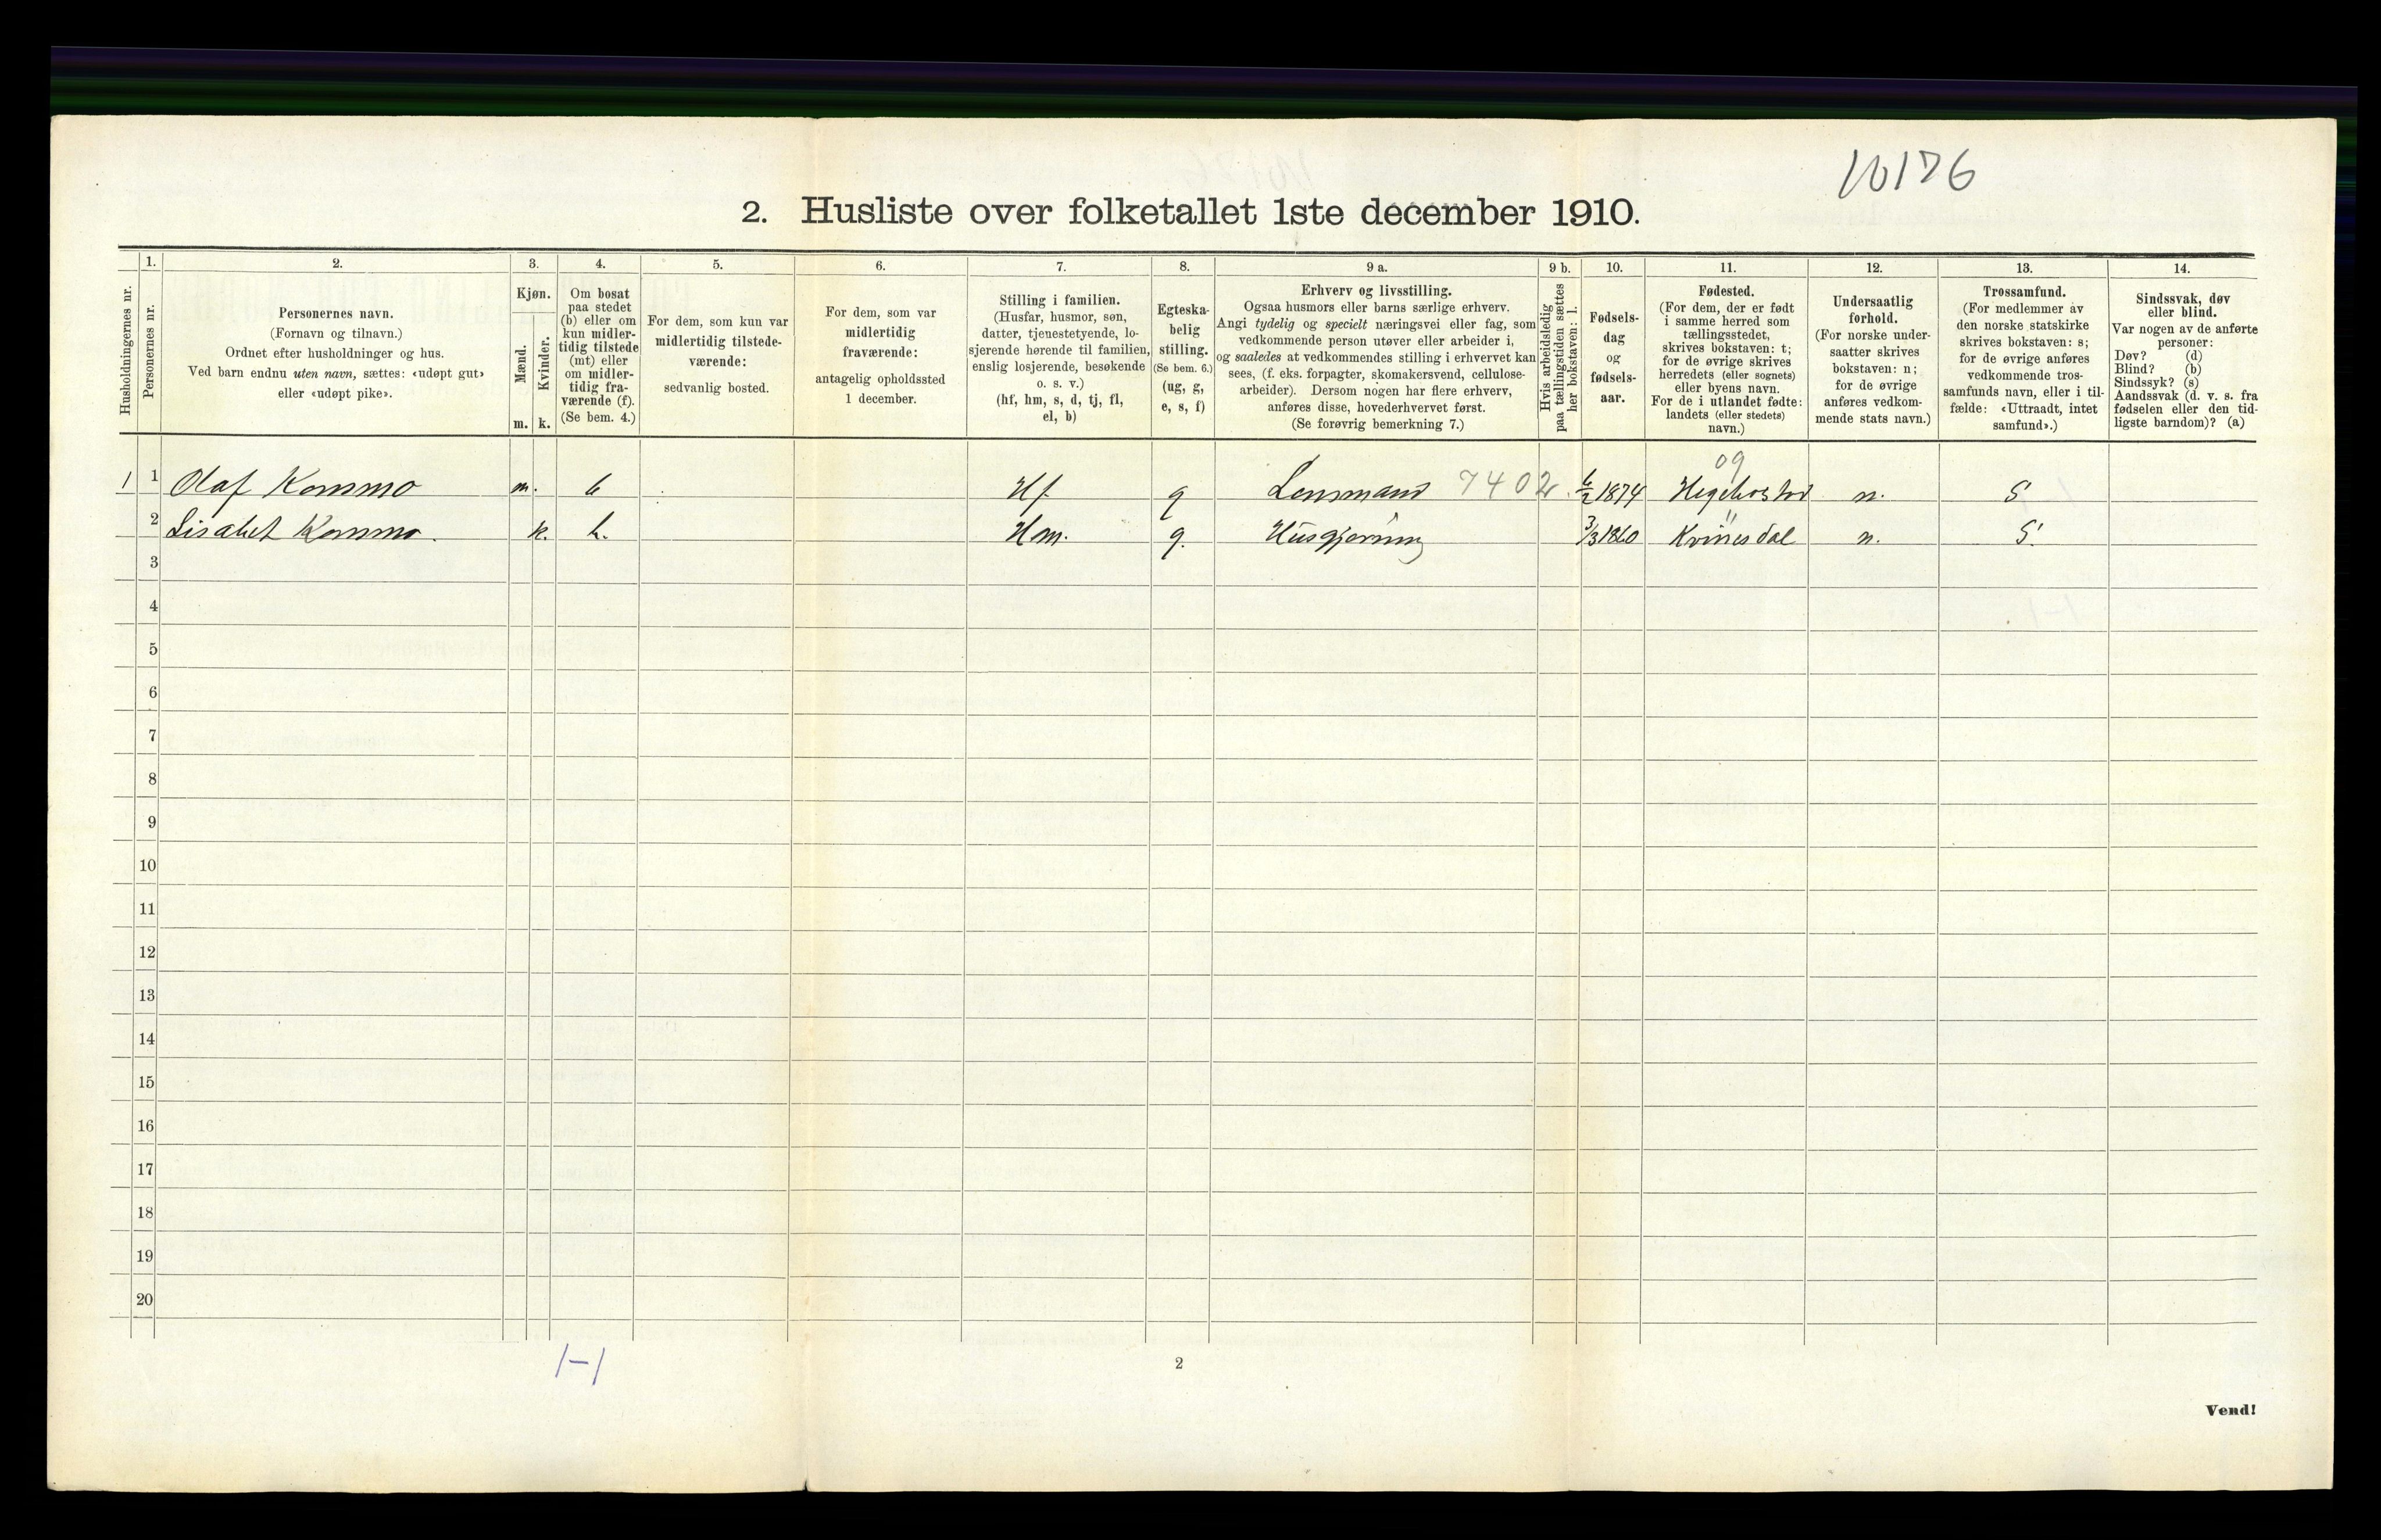 10176
2. Husliste over folketallet 1ste december 1910.
Husholdningernes nr.
1.
Personernes nr.
2.
Personernes navn.
(Fornavn og tilnavn.)
Ordnet efter husholdninger og hus.
Ved barn endnu uten navn, sættes: «udøpt gut»
eller «udøpt pike».
3.
Kjøn.
Mænd.
Kvinder.
m.
k.
4.
Om bosat
paa stedet
(b) eller om
kun midler-
tidig tilstede
(mt) eller
om midler-
tidig fra-
værende (f).
(Se bem. 4.)
5.
For dem, som kun var
midlertidig tilstede-
værende:
sedvanlig bosted.
6.
For dem, som var
midlertidig
fraværende:
antagelig opholdssted
1 december.
7.
Stilling i familien.
(Husfar, husmor, søn,
datter, tjenestetyende, lo-
sjerende hørende til familien,
enslig losjerende, besøkende
o. s. v.)
(hf, hm, s, d, tj, fl,
el, b)
8.
Egteska-
belig
stilling.
(Se bem. 6.)
(ug, g,
e, s, f)
9 a.
Erhverv og livsstilling.
Ogsaa husmors eller barns særlige erhverv.
Angi tydelig og specielt næringsvei eller fag, som
vedkommende person utøver eller arbeider i,
og saaledes at vedkommendes stilling i erhvervet kan
sees, (f. eks. forpagter, skomakersvend, cellulose-
arbeider). Dersom nogen har flere erhverv,
anføres disse, hovederhvervet først.
(Se forøvrig bemerkning 7.)
9 b.
Hvis arbeidsledig
paa tællingstiden sættes
her bokstaven: l.
10.
Fødsels-
dag
og
fødsels-
aar.
11.
Fødested.
(For dem, der er født
i samme herred som
tællingsstedet,
skrives bokstaven: t;
for de øvrige skrives
herredets (eller sognets)
eller byens navn.
For de i utlandet fødte:
landets (eller stedets)
navn.)
12.
Undersaatlig
forhold.
(For norske under-
saatter skrives
bokstaven: n;
for de øvrige
anføres vedkom-
mende stats navn.)
13.
Trossamfund.
(For medlemmer av
den norske statskirke
skrives bokstaven: s;
for de øvrige anføres
vedkommende tros-
samfunds navn, eller i til-
fælde: «Uttraadt, intet
samfund».)
14.
Sindssvak, døv
eller blind.
Var nogen av de anførte
personer:
Døv? (d)
Blind? (b)
Sindssyk? (s)
Aandssvak (d. v. s. fra
fødselen eller den tid-
ligste barndom)? (a)
09
1 1 Olaf Kommo m. b Hf. g Lensmand 7402 6/2 1874 Hegebostad n. S
"
2 Lisabet Kommo. k. b. Hm. g. Husgjerning 3/3 1860 Kvinesdal n. S.
3
4
5
6
7
8
9
10
11
12
13
14
15
16
17
18
19
20
1-1
2
Vend!